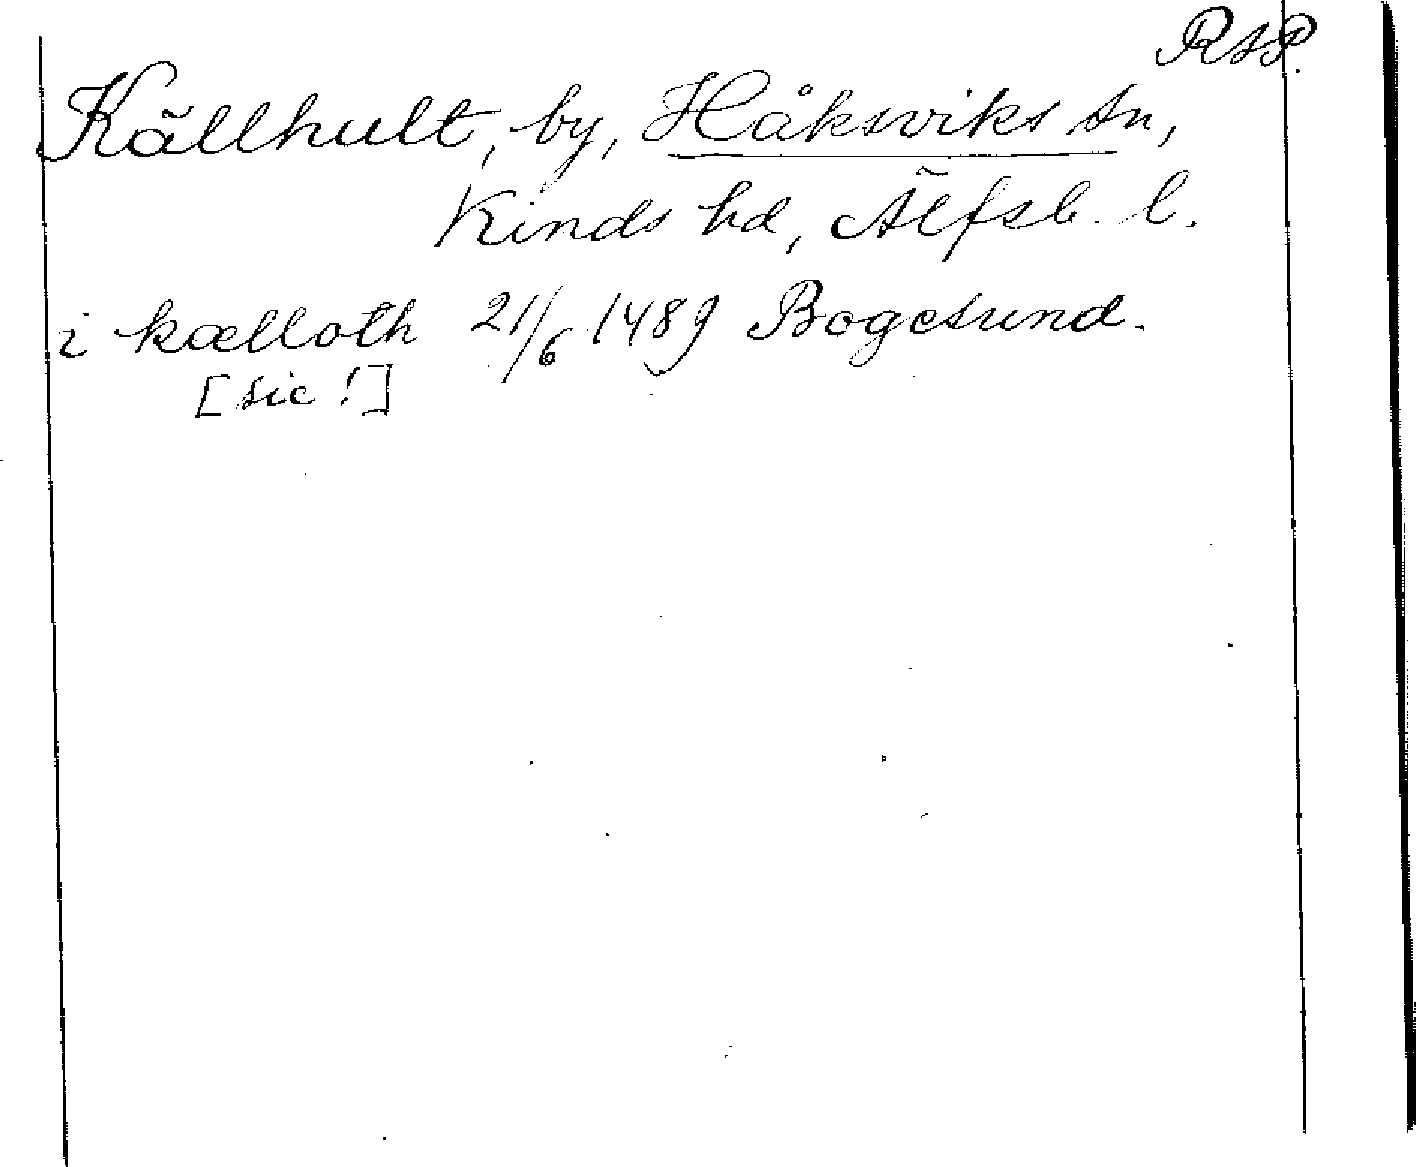 RAP.
Källhult, by, Håksviks sn,
Kinds hd, Älfsb. l.
i kælloth 21/6 1489 Bogesund.
[sic!]